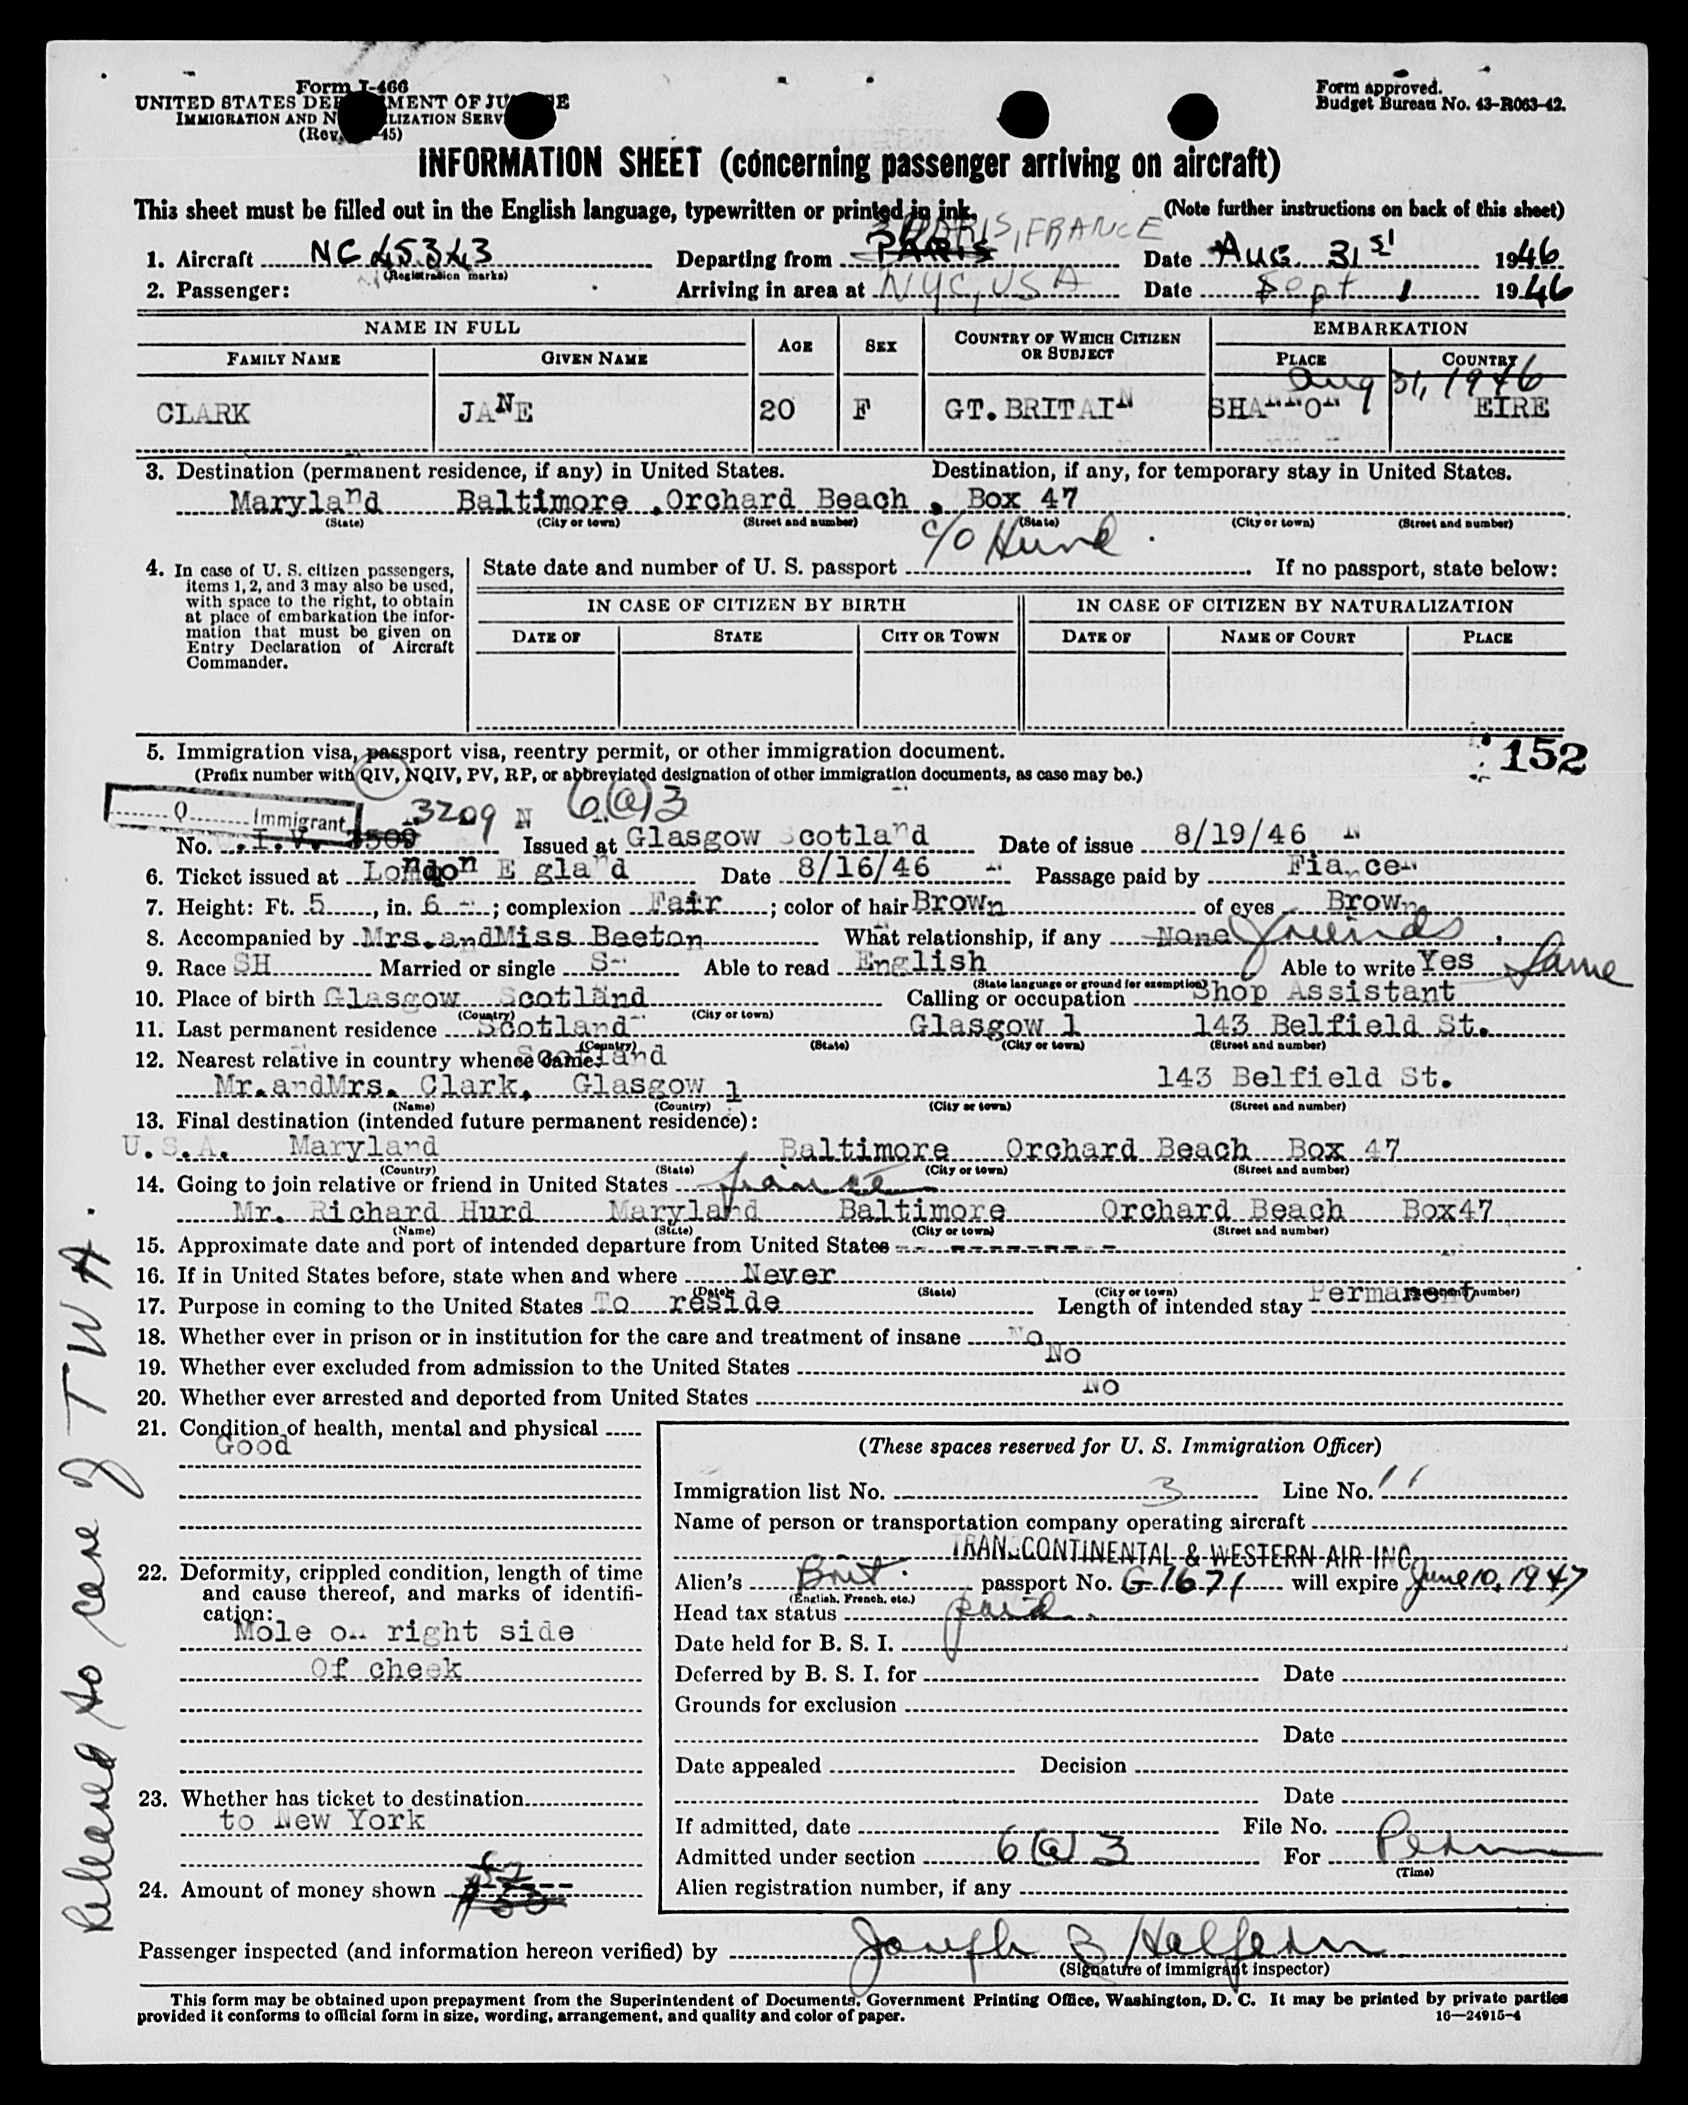 Form I-466
UNITED STATES DEPARTMENT OF JUSTICE
IMMIGRATION AND NATURALIZATION SERVICE
(Rev. -45)
Form approved.
Budget Bureau No. 43-R063-42.
INFORMATION SHEET (concerning passenger arriving on aircraft)
This sheet must be filled out in the English language, typewritten or printed in ink. (Note further instructions on back of this sheet)
PARIS, FRANCE
1. Aircraft NC 45343 Departing from PARIS Date Aug. 31st 1946
(Registration marks)
2. Passenger: Arriving in area at NYC, USA Date Sept 1 1946
NAME IN FULL AGE SEX COUNTRY OF WHICH CITIZEN OR SUBJECT EMBARKATION
FAMILY NAME GIVEN NAME PLACE COUNTRY
Aug 31, 1946
CLARK JANE 20 F GT. BRITAIN SHANNON EIRE
3. Destination (permanent residence, if any) in United States. Destination, if any, for temporary stay in United States.
Maryland Baltimore, Orchard Beach, Box 47
(State) (City or town) (Street and number) (State) (City or town) (Street and number)
c/o Hurd
4. In case of U. S. citizen passengers, items 1, 2, and 3 may also be used, with space to the right, to obtain at place of embarkation the information that must be given on Entry Declaration of Aircraft Commander.
State date and number of U. S. passport If no passport, state below:
IN CASE OF CITIZEN BY BIRTH IN CASE OF CITIZEN BY NATURALIZATION
DATE OF STATE CITY OR TOWN DATE OF NAME OF COURT PLACE
5. Immigration visa, passport visa, reentry permit, or other immigration document. 152
(Prefix number with QIV, NQIV, PV, RP, or abbreviated designation of other immigration documents, as case may be.)
Q Immigrant 3209 N 6(a)3
No. I.V. 3509 Issued at Glasgow Scotland Date of issue 8/19/46
6. Ticket issued at London England Date 8/16/46 Passage paid by Fiance
7. Height: Ft. 5, in. 6; complexion Fair; color of hair Brown of eyes Brown
8. Accompanied by Mrs.andMiss Beeton What relationship, if any None friends
9. Race SH Married or single S Able to read English Able to write Yes Same
(State language or ground for exemption)
10. Place of birth Glasgow Scotland Calling or occupation Shop Assistant
(Country) (City or town)
11. Last permanent residence Scotland Glasgow 1 143 Belfield St.
(Country) (State) (City or town) (Street and number)
12. Nearest relative in country whence came: Scotland
Mr.andMrs. Clark, Glasgow 1 143 Belfield St.
(Name) (Country) (City or town) (Street and number)
13. Final destination (intended future permanent residence):
U.S.A. Maryland Baltimore Orchard Beach Box 47
(Country) (State) (City or town) (Street and number)
14. Going to join relative or friend in United States fiance
Mr. Richard Hurd Maryland Baltimore Orchard Beach Box47
(Name) (State) (City or town) (Street and number)
15. Approximate date and port of intended departure from United States --------
16. If in United States before, state when and where Never
(Date) (State) (City or town) (Street and number)
17. Purpose in coming to the United States To reside Length of intended stay Permanent
18. Whether ever in prison or in institution for the care and treatment of insane No
19. Whether ever excluded from admission to the United States No
20. Whether ever arrested and deported from United States No
21. Condition of health, mental and physical
Good
22. Deformity, crippled condition, length of time and cause thereof, and marks of identification:
Mole on right side
Of cheek
23. Whether has ticket to destination
to New York
24. Amount of money shown
(These spaces reserved for U. S. Immigration Officer)
Immigration list No. 3 Line No. 11
Name of person or transportation company operating aircraft
TRANSCONTINENTAL & WESTERN AIR INC
Alien's Brit. passport No. G 1671 will expire June 10, 1947
(English, French, etc.)
Head tax status paid.
Date held for B. S. I.
Deferred by B. S. I. for Date
Grounds for exclusion
Date
Date appealed Decision
Date
If admitted, date File No.
Admitted under section 6(a)3 For Perm
(Time)
Alien registration number, if any
Passenger inspected (and information hereon verified) by Joseph B Halfern
(Signature of immigrant inspector)
This form may be obtained upon prepayment from the Superintendent of Documents, Government Printing Office, Washington, D. C. It may be printed by private parties
provided it conforms to official form in size, wording, arrangement, and quality and color of paper. 16—24915-4
Released to care of TWA.